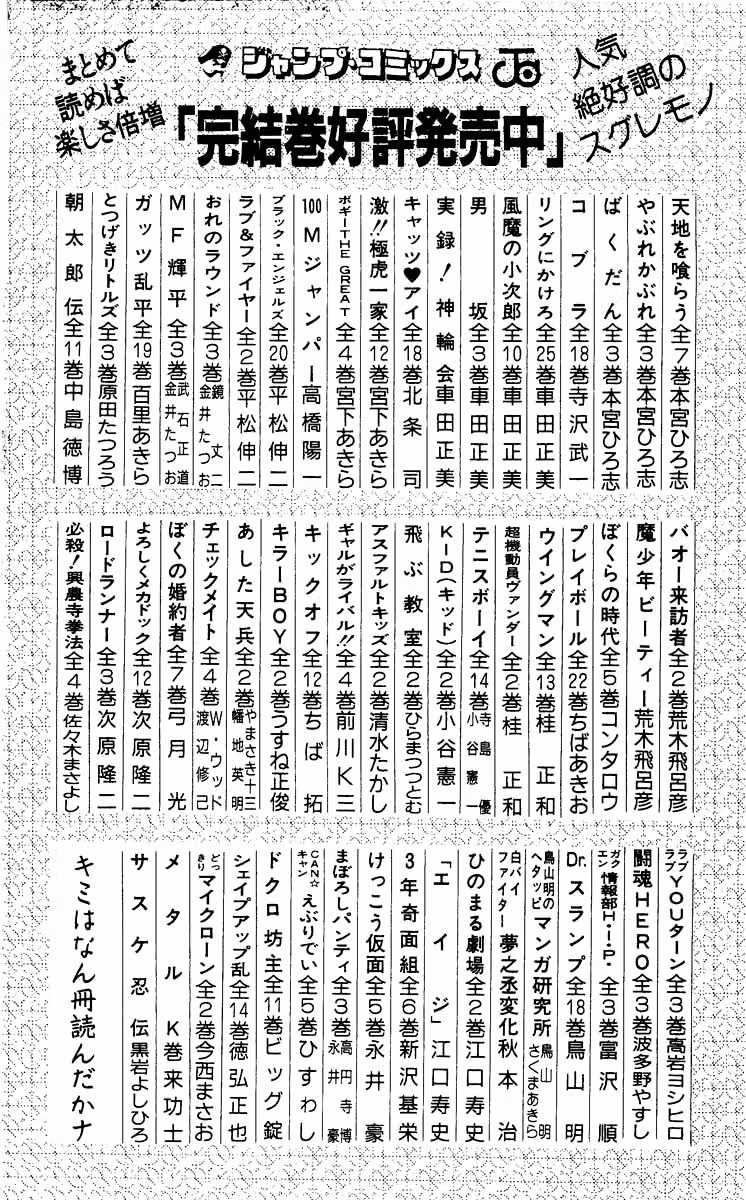 人気
絶好調の
スグレモノ
ジャンプ・コミックス
「完結巻好評発売中」
まとめて
読めば
楽しさ倍増
天地を喰らう全7巻本宮ひろ志
やぶれかぶれ全3巻本宮ひろ志
ばくだん全3巻本宮ひろ志
コブラ全18巻寺沢武一
リングにかけろ全25巻車田正美
風魔の小次郎全10巻車田正美
男坂全3巻車田正美
実録!神輪会車田正美
キャッツ♥アイ全18巻北条司
激!!極虎一家全12巻宮下あきら
ボギーTHE GREAT全4巻宮下あきら
100Mジャンパー高橋陽一
ブラック・エンジェルズ全20巻平松伸二
ラブ&ファイヤー全2巻平松伸二
おれのラウンド全3巻鏡丈二 金井たつお
MF輝平全3巻武石正道 金井たつお
ガッツ乱平全19巻百里あきら
とつげきリトルズ全3巻原田たつろう
朝太郎伝全11巻中島徳博
バオー来訪者全2巻荒木飛呂彦
魔少年ビーティー荒木飛呂彦
ぼくらの時代全5巻コンタロウ
プレイボール全22巻ちばあきお
ウイングマン全13巻桂正和
超機動員ヴァンダー全2巻桂正和
テニスボーイ全14巻寺島優 小谷憲一
KID(キッド)全2巻小谷憲一
飛ぶ教室全2巻ひらまつつとむ
アスファルトキッズ全2巻清水たかし
ギャルがライバル!!全4巻前川K三
キックオフ全12巻ちば拓
キラーBOY全2巻うすね正俊
あした天兵全2巻やまさき十三 幡地英明
チェックメイト全4巻W・ウッド 渡辺修己
ぼくの婚約者全7巻弓月光
よろしくメカドック全12巻次原隆二
ロードランナー全3巻次原隆二
必殺!興農寺拳法全4巻佐々木まさよし
ラブラブYOUターン全3巻高岩ヨシヒロ
闘魂HERO全3巻波多野やすし
ガタエン情報部H・I・P・全3巻富沢順
Dr.スランプ全18巻鳥山明
鳥山明のヘタッピマンガ研究所鳥山明 さくまあきら
白バイファイター夢之丞変化秋本治
ひのまる劇場全2巻江口寿史
「エイジ」江口寿史
3年奇面組全6巻新沢基栄
けっこう仮面全5巻永井豪
まぼろしパンティ全3巻高円寺博 永井豪
CAN☆キャンえぶりでい全5巻ひすわし
ドクロ坊主全11巻ビッグ錠
シェイプアップ乱全14巻徳弘正也
どっきりマイクローン全2巻今西まさお
メタルK巻来功士
サスケ忍伝黒岩よしひろ
キミはなん冊読んだかナ